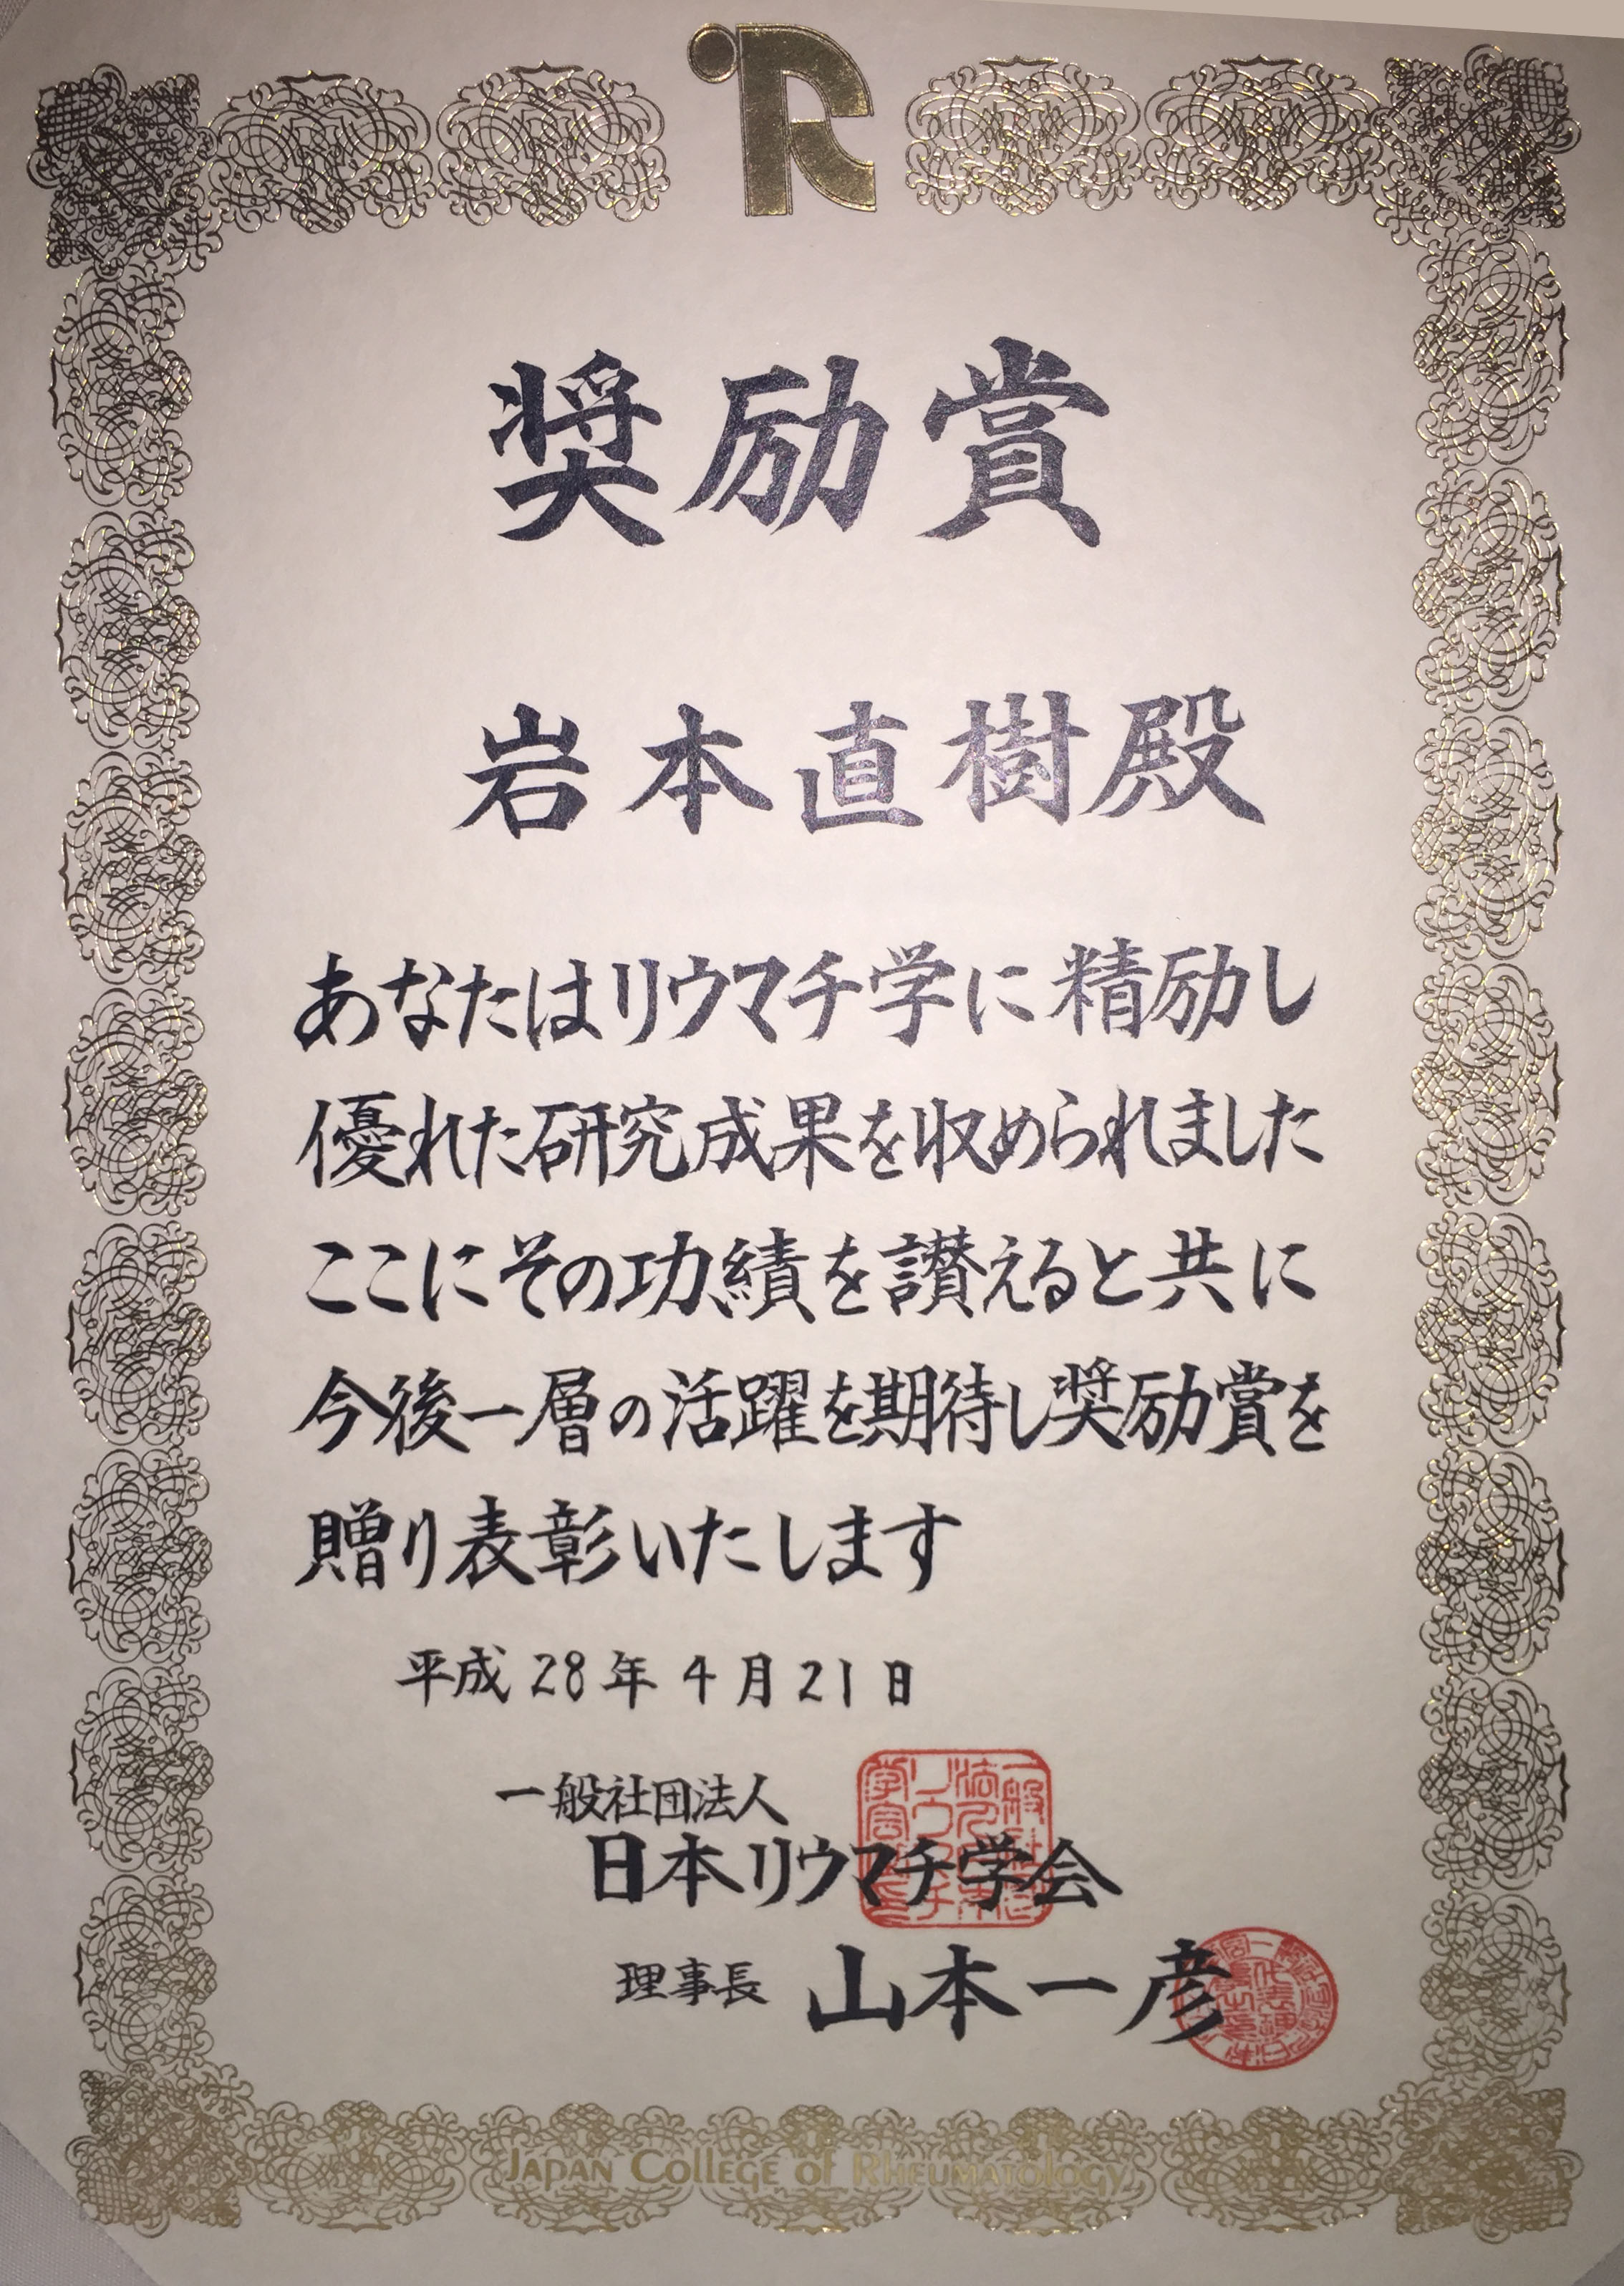 奨励賞
岩本直樹殿
あなたはリウマチ学に精励し
優れた研究成果を収められました
ここにその功績を讃えると共に
今後一層の活躍を期待し奨励賞を
贈り表彰いたします
平成28年4月21日
一般社団法人
日本リウマチ学会
理事長 山本一彦
JAPAN COLLEGE of RHEUMATOLOGY